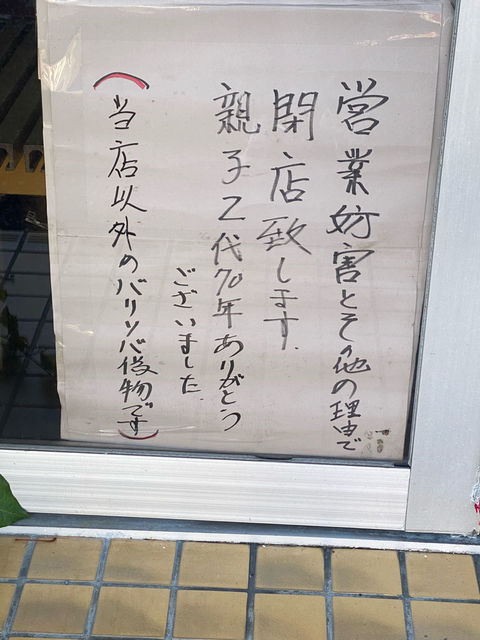 営業妨害とその他の理由で
閉店致します.
親子2代70年ありがとう
ございました.
(当店以外のバリソバ偽物です)